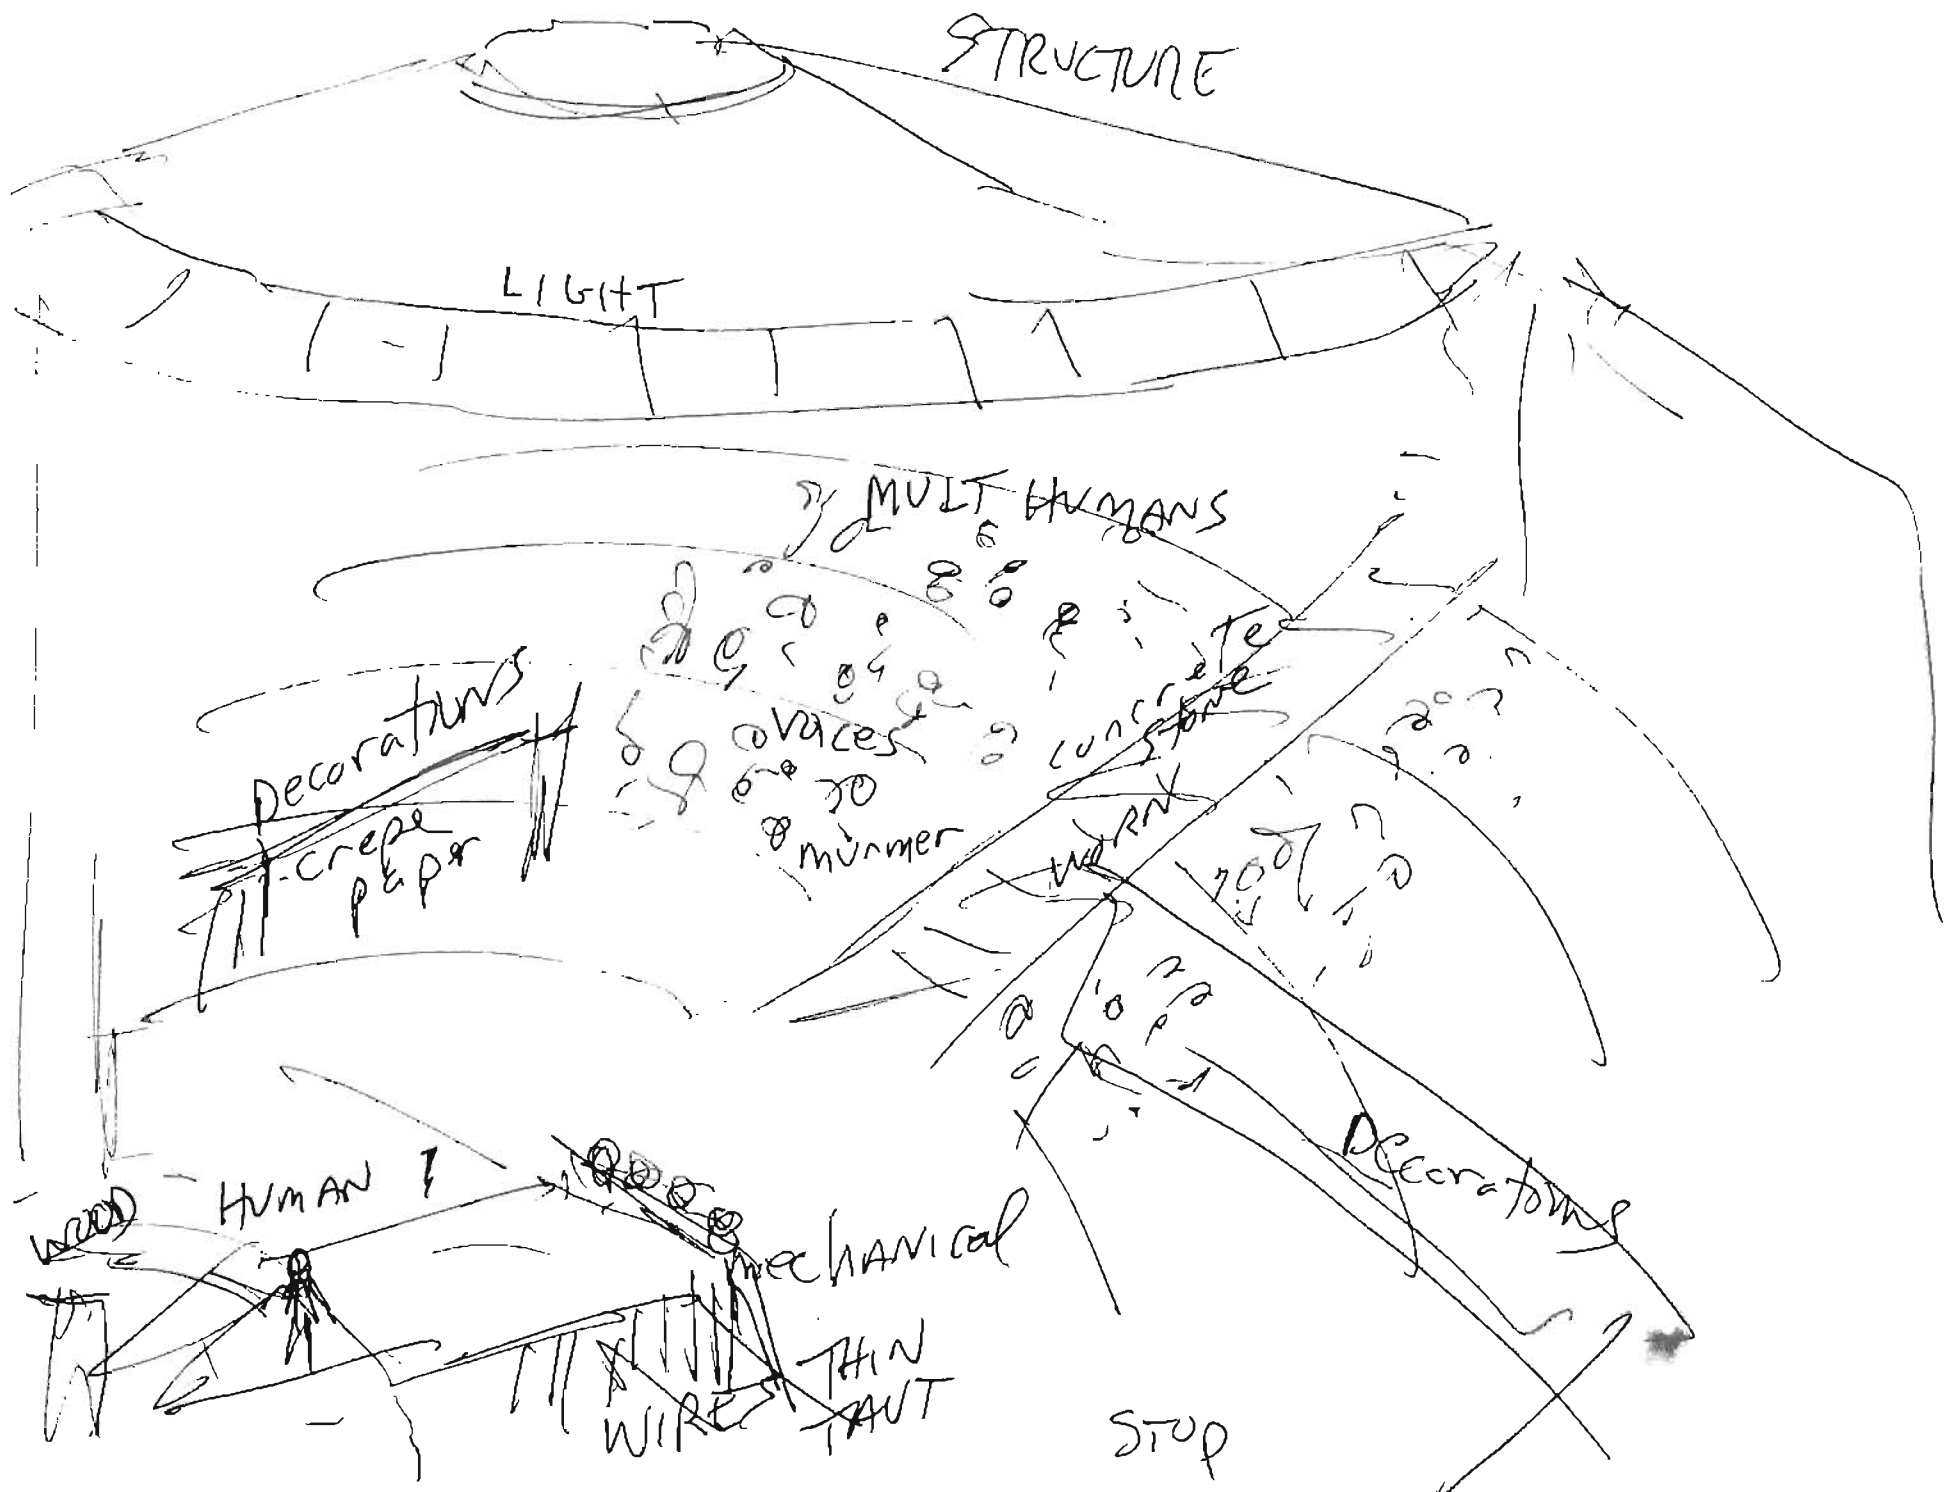 STRUCTURE
LIGHT
MULT HUMANS
Decorations
crepe
paper
voices
murmer
concrete
stone
WORN
Decorations
HUMAN 1
WOOD
mechanical
WIRES
THIN
TAUT
STOP